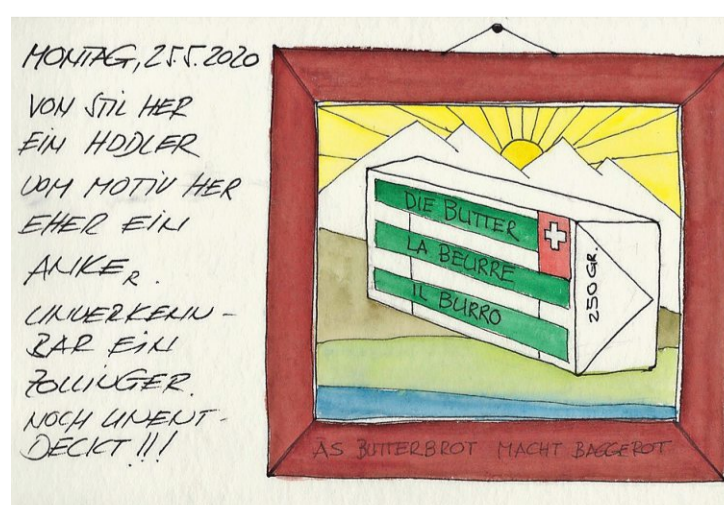 MONTAG, 25.5.2020
VON STIL HER
EIN HODLER
VOM MOTIV HER
EHER EIN
ANKER.
UNVERKENN-
BAR EIN
ZOLLINGER.
NOCH UNENT-
DECKT!!!
DIE BUTTER
LA BEURRE
IL BURRO
250 GR.
ÄS BUTTERBROT MACHT BAGGEROT